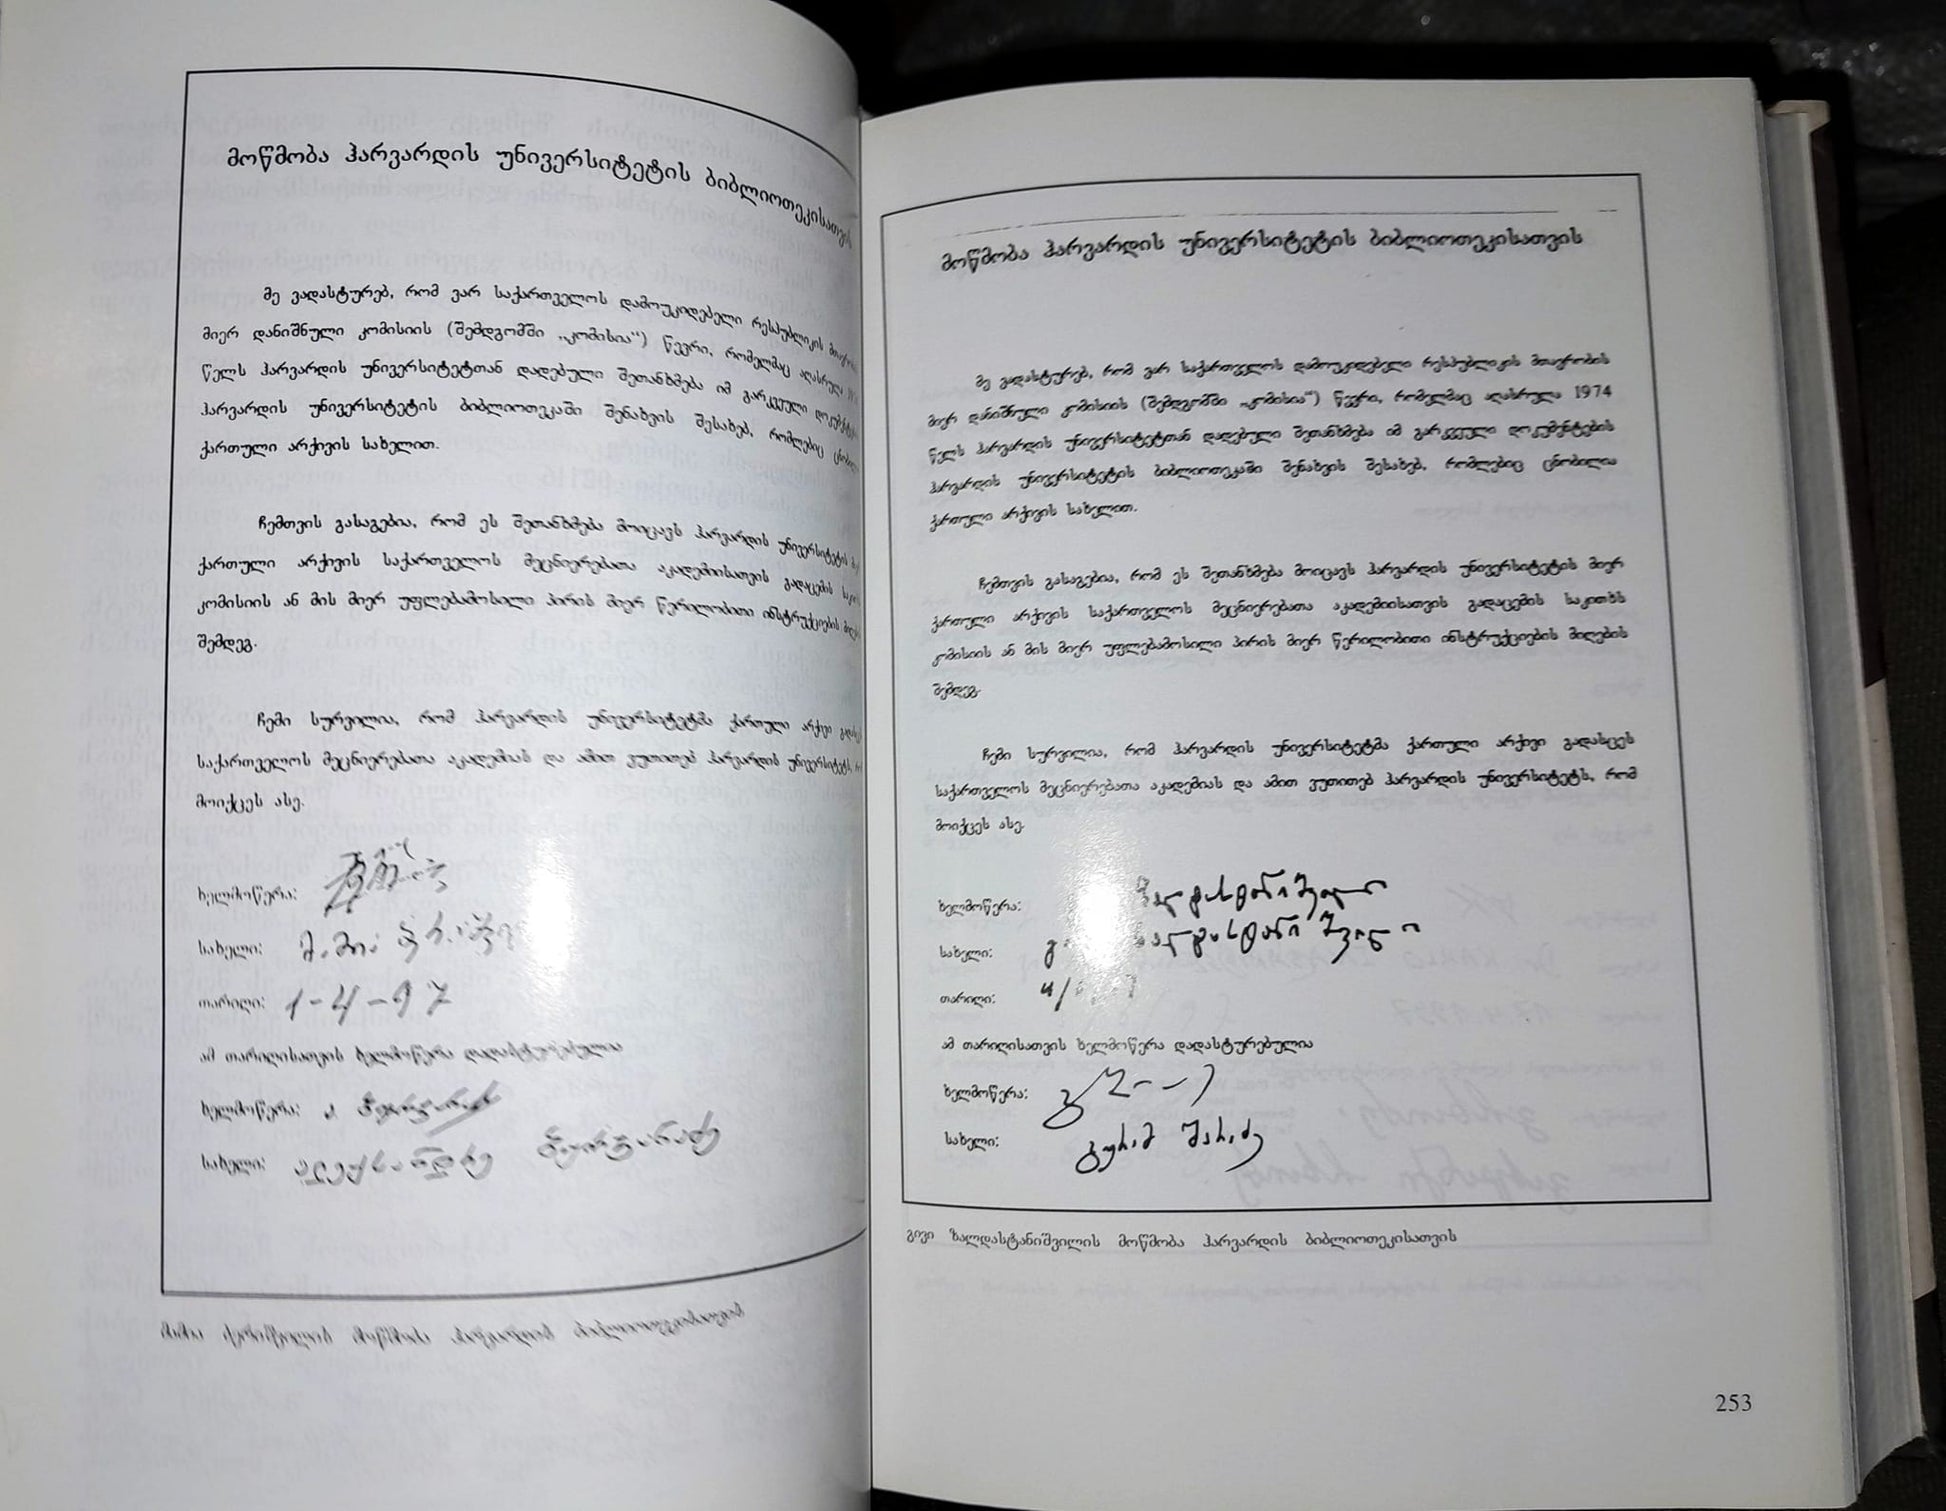 მოწმობა ჰარვარდის უნივერსიტეტის ბიბლიოთეკისათვის
მე ვადასტურებ, რომ ვარ საქართველოს დამოუკიდებელი რესპუბლიკის
მიერ დანიშნული კომისიის (შემდგომში „კომისია“) წევრი, რომელმაც აღასრულა
წელს ჰარვარდის უნივერსიტეტთან დადებული შეთანხმება იმ გარკვეული
ჰარვარდის უნივერსიტეტის ბიბლიოთეკაში შენახვის შესახებ, რომლებიც
ქართული არქივის სახელით.
ჩემთვის გასაგებია, რომ ეს შეთანხმება მოიცავს ჰარვარდის უნივერსიტეტის
ქართული არქივის საქართველოს მეცნიერებათა აკადემიისათვის გადაცემის
კომისიის ან მის მიერ უფლებამოსილი პირის მიერ წერილობითი ინსტრუქციების
შემდეგ.
ჩემი სურვილია, რომ ჰარვარდის უნივერსიტეტმა ქართული არქივი
საქართველოს მეცნიერებათა აკადემიას და ამით ვუთითებ ჰარვარდის უნივერსიტეტს,
მოიქცეს ასე.
ხელმოწერა:
სახელი:
თარიღი: 1-4-97
ამ თარიღისათვის ხელმოწერა დადასტურებულია
ხელმოწერა:
სახელი: ალექსანდრე
მოწმობა ჰარვარდის ბიბლიოთეკისათვის
მოწმობა ჰარვარდის უნივერსიტეტის ბიბლიოთეკისათვის
მე ვადასტურებ, რომ ვარ საქართველოს დამოუკიდებელი რესპუბლიკის მთავრობის
მიერ დანიშნული კომისიის (შემდგომში „კომისია“) წევრი, რომელმაც აღასრულა 1974
წელს ჰარვარდის უნივერსიტეტთან დადებული შეთანხმება იმ გარკვეული დოკუმენტების
ჰარვარდის უნივერსიტეტის ბიბლიოთეკაში შენახვის შესახებ, რომლებიც ცნობილია
ქართული არქივის სახელით.
ჩემთვის გასაგებია, რომ ეს შეთანხმება მოიცავს ჰარვარდის უნივერსიტეტის მიერ
ქართული არქივის საქართველოს მეცნიერებათა აკადემიისათვის გადაცემის საკითხს
კომისიის ან მის მიერ უფლებამოსილი პირის მიერ წერილობითი ინსტრუქციების მიღების
შემდეგ.
ჩემი სურვილია, რომ ჰარვარდის უნივერსიტეტმა ქართული არქივი გადასცეს
საქართველოს მეცნიერებათა აკადემიას და ამით ვუთითებ ჰარვარდის უნივერსიტეტს, რომ
მოიქცეს ასე.
ხელმოწერა:
სახელი:
თარიღი:
ამ თარიღისათვის ხელმოწერა დადასტურებულია
ხელმოწერა:
სახელი: გურამ შარაძე
გივი ზალდასტანიშვილის მოწმობა ჰარვარდის ბიბლიოთეკისათვის
253